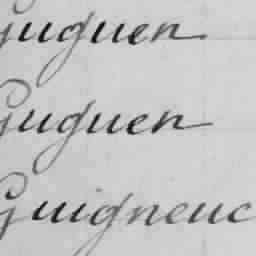 Guguen
Guguen
Guigneuc